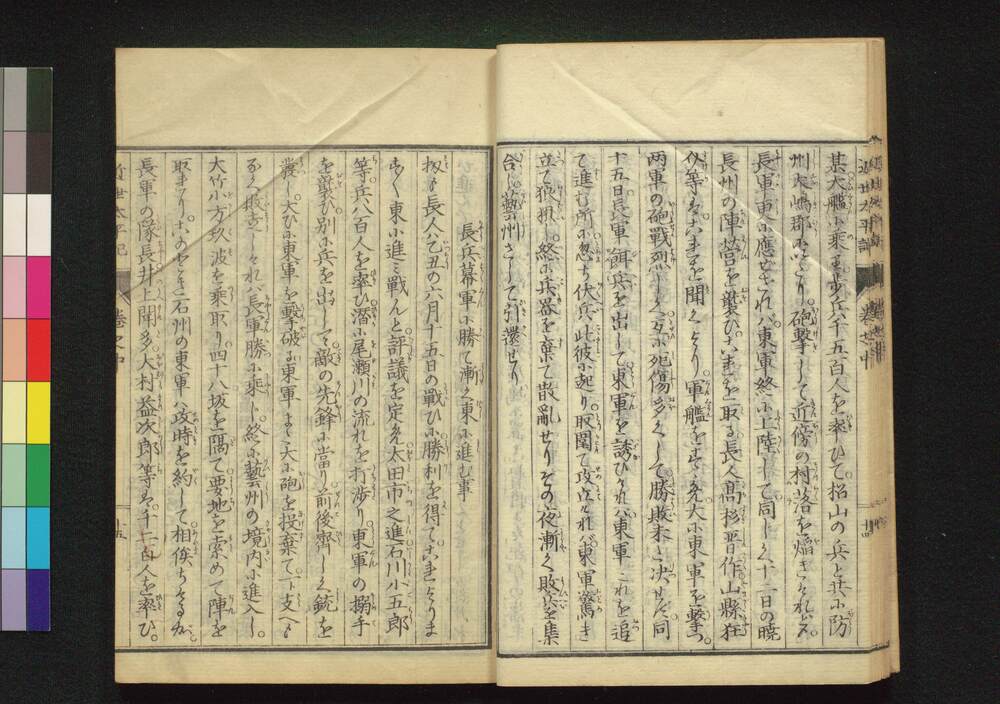 某大艦に乗り歩兵千五百人を率ひて松山の兵と共に防
州大嶋郡にいたり砲撃して近傍の村落を焔きけれども
長軍更に應ぜざれバ東軍終に上陸して同しく十二日の暁
長州の陣営を襲ひこれを取る長人髙杉晋作山縣狂
介等これを聞くより軍艦をすゝめ大に東軍を撃つ
両軍の砲戰烈しく互に死傷多くして勝敗未だ决せず同
十五日長軍餌兵を出して東軍を誘ひけれバ東軍これを追
て進む所に忽ち伏兵此彼に起り鬨て攻立れバ東軍驚き
立て狼狽し終に兵器を棄て散亂せりその夜漸く敗兵を集
合し藝州さして引還せり
長兵幕軍に勝て漸く東に進む事
扨も長人乙丑の六月十五日の戰ひに勝利を得てこれよりま
すく東に進ミ戰んと評議を定め太田市之進石川小五郎
等兵八百人を率ひ潛に尾瀬川の流れを打渉り東軍の搦手
を襲ひ別に兵を出して敵の先鋒に當り前後齊しく銃を
發し大ひに東軍を撃破る東軍まと大小砲を投棄て一支へも
なく敗走しけれバ長軍勝に乗し終に藝州の境内に進入し
大竹小方玖波を乘取り四十八坂を隔て要地を索めて陣を
取けりこのとき石州の東軍ハ攻時を約して相俟ちけるが
長軍の隊長井上聞多大村益次郎等ハ千二百人を率ひ
近世太平記
巻之中
十五